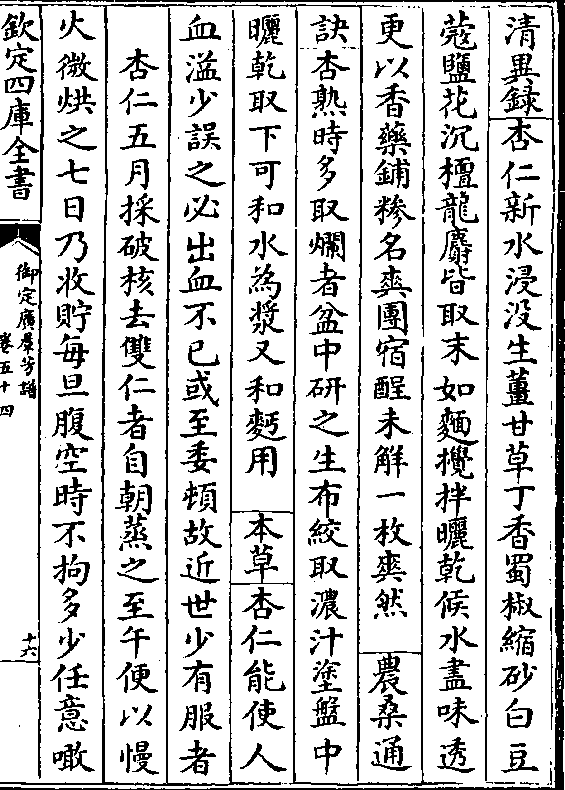 清異録杏仁新水浸没生薑甘草丁香蜀椒縮砂白豆
蔻鹽花沉檀龍麝皆取末如麵攪拌曬乾候水盡味透
更以香藥鋪糝名爽團宿酲未解一枚爽然 農桑通
訣杏熟時多取爛者盆中研之生布絞取濃汁塗盤中
曬乾取下可和水為漿又和麪用 本草杏仁能使人
血溢少誤之必出血不已或至委頓故近世少有服者
杏仁五月採破核去雙仁者自朝蒸之至午便以慢
火微烘之七日乃收貯每旦腹空時不拘多少任意噉
欽定四庫全書
御定廣羣芳譜
卷五十四
十六